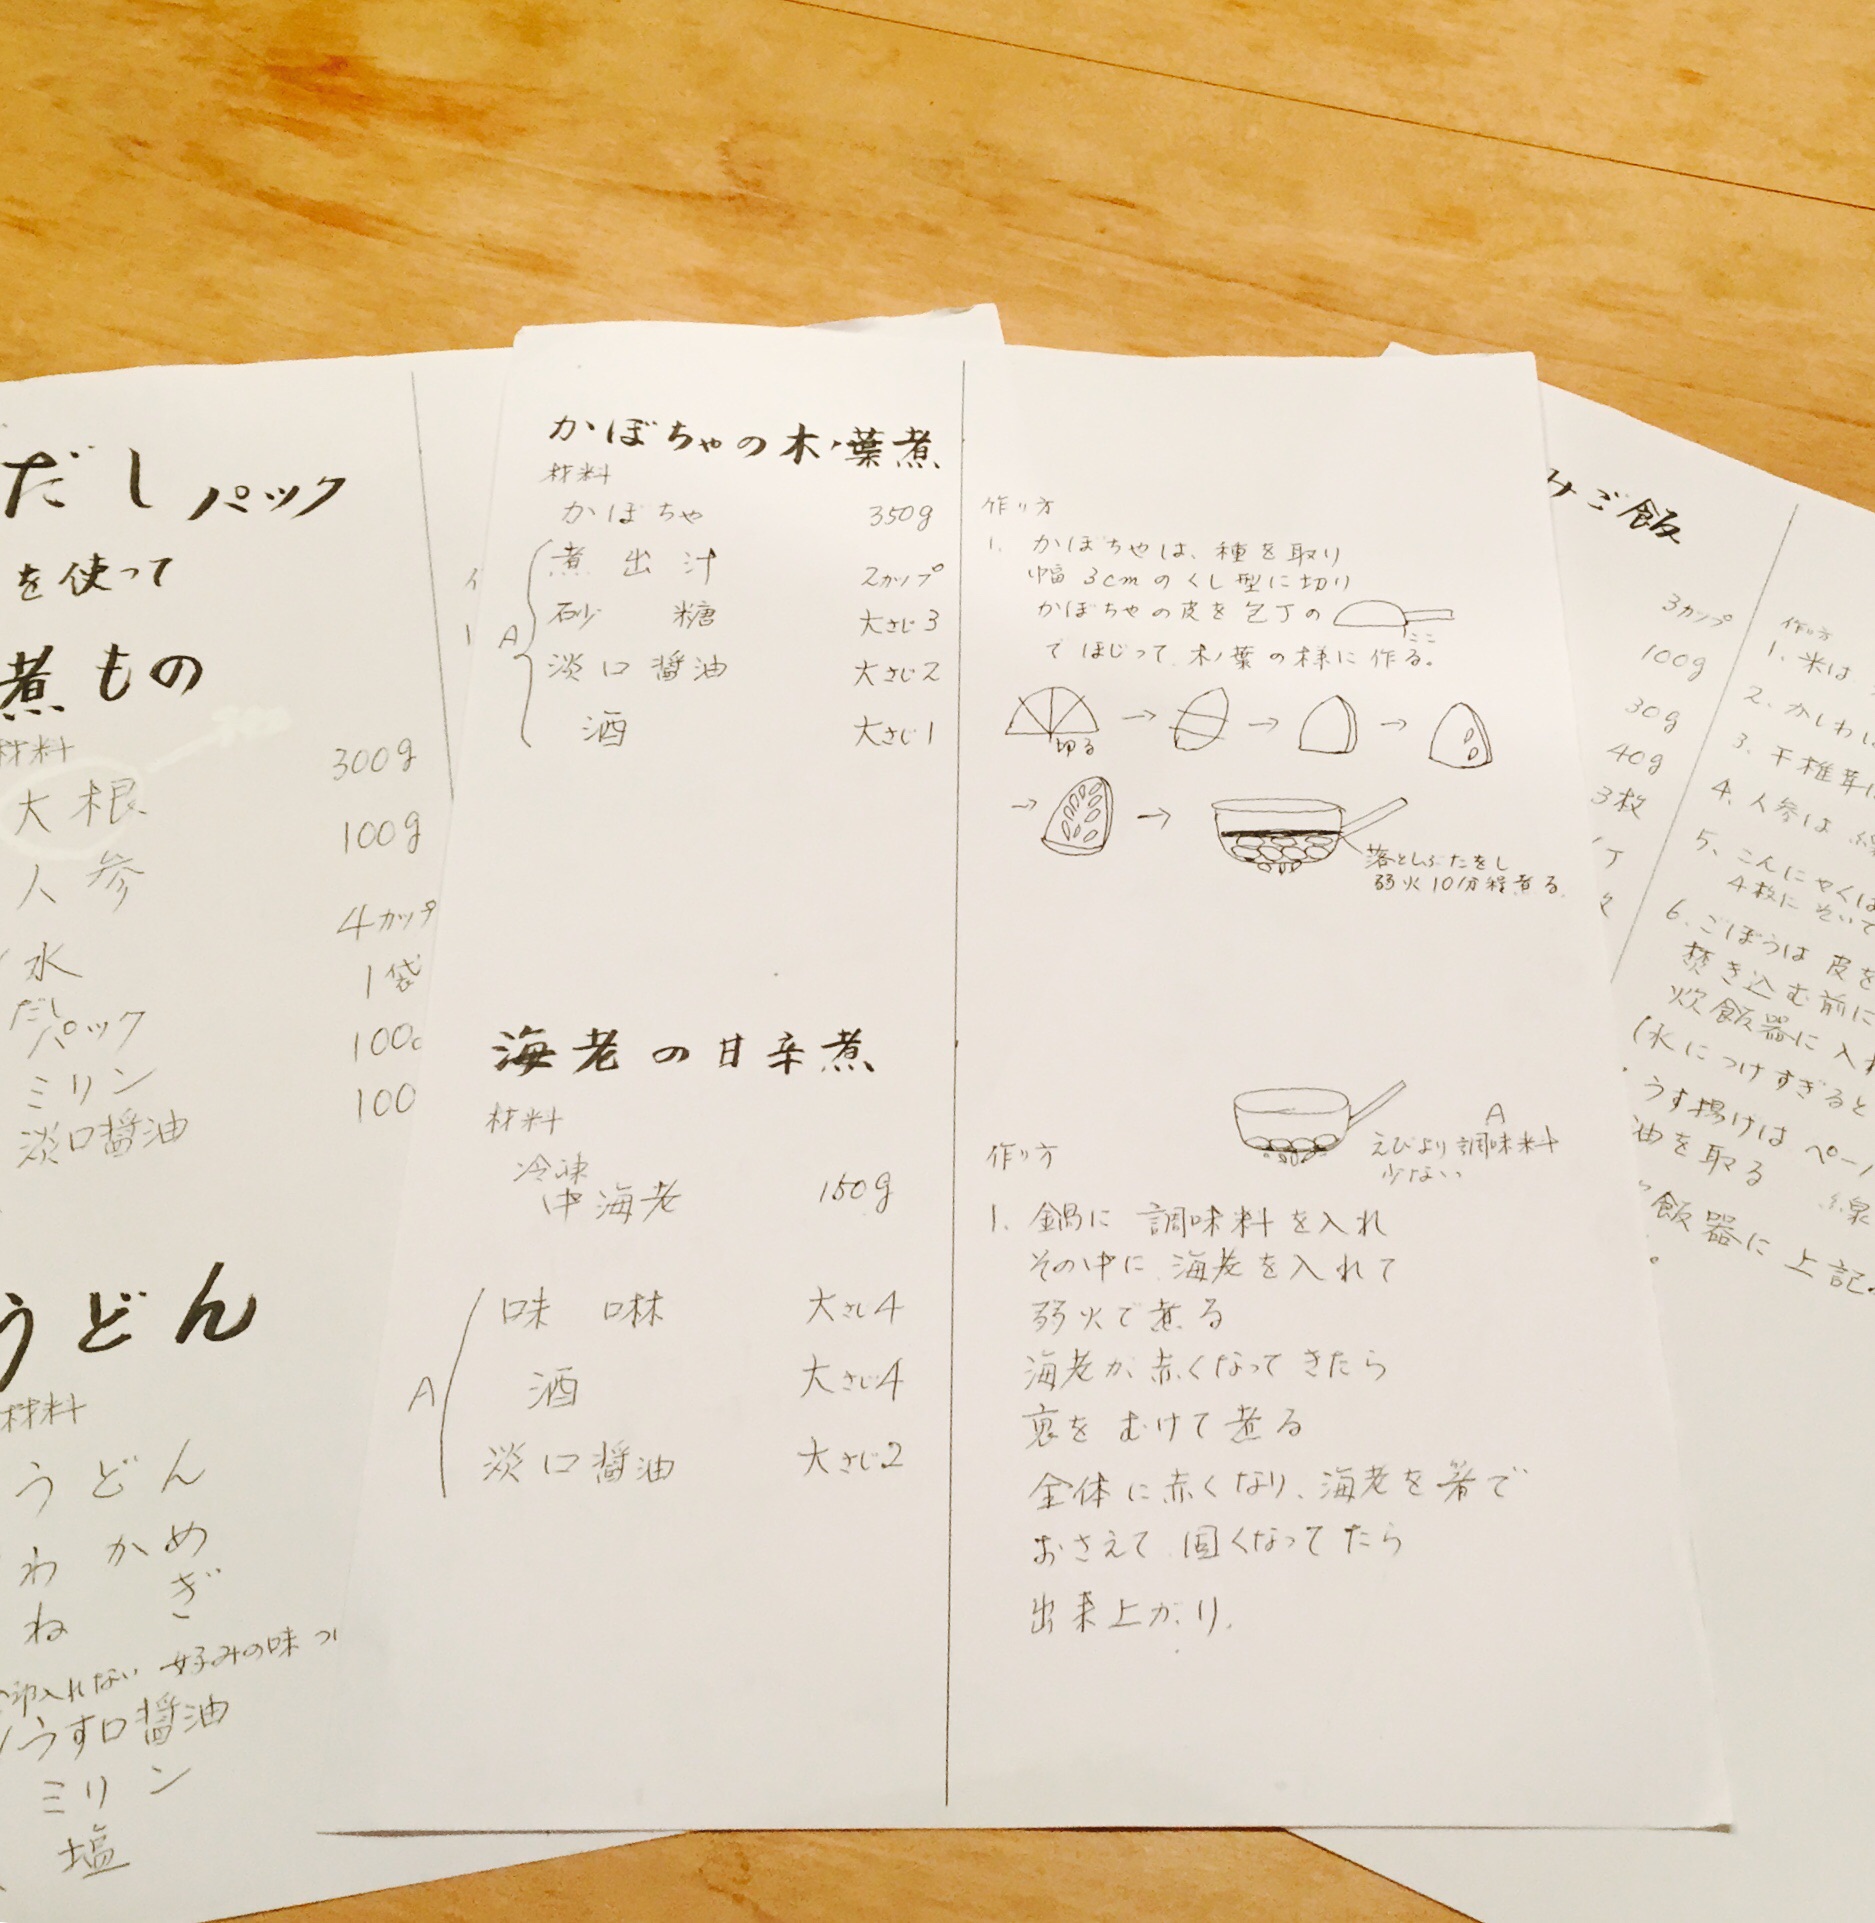 だしパック
を使って
煮もの
材料
大根 300g
人参 100g
水 4カップ
だし
パック 1袋
ミリン 100c
淡口醤油 100
うどん
材料
うどん
わかめ
ねぎ
入れない 好みの味
うす口醤油
ミリン
塩
かぼちゃの木ノ葉煮
材料
かぼちゃ 350g
A
煮出汁 2カップ
砂糖 大さじ3
淡口醤油 大さじ2
酒 大さじ1
作り方
1. かぼちゃは、種を取り
巾幅 3cmのくし型に切り
かぼちゃの皮を包丁の
ここ
でほじって木ノ葉の様に作る。
切る
落としぶたをし
弱火10分程煮る
海老の甘辛煮
材料
冷凍
中海老 150g
A
味醂 大さじ4
酒 大さじ4
淡口醤油 大さじ2
作り方
A
えびより調味料
少ない
1. 鍋に調味料を入れ
その中に海老を入れて
弱火で煮る
海老が赤くなってきたら
裏をむけて煮る
全体に赤くなり、海老を箸で
おさえて固くなってたら
出来上がり.
みご飯
3カップ
100g
30g
40g
3枚
作り方
1. 米は
2. かしわ
3. 干椎茸は
4. 人参は
5. こんにゃくは
4枚にそいで
6. ごぼうは皮を
焚き込む前に
炊飯器に入れ
(水につけすぎると
うす揚げはペー
油を取る 線
飯器に上記